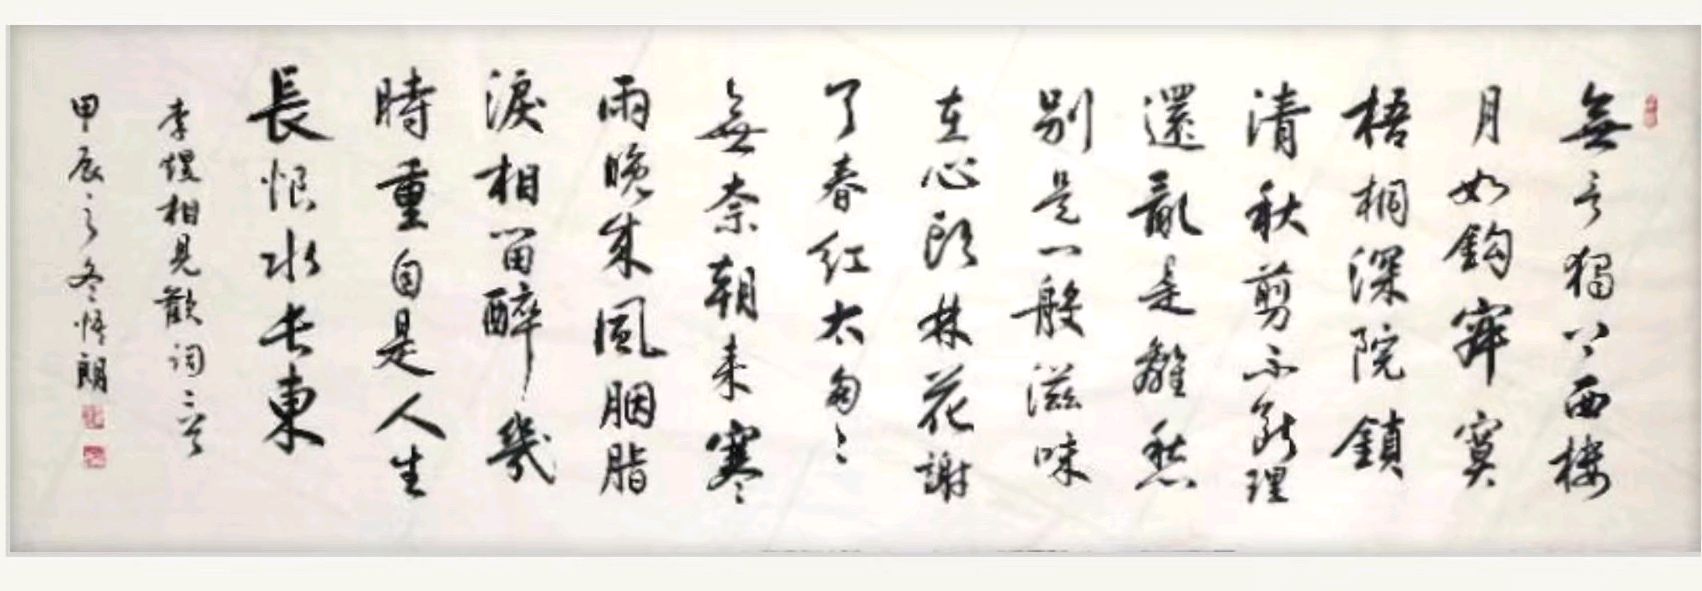 無言獨上西樓
月如鈎寂寞
梧桐深院鎖
清秋剪不斷理
還亂是離愁
別是一般滋味
在心頭林花謝
了春紅太匆〻
無奈朝來寒
雨晚來風胭脂
淚相留醉幾
時重自是人生
長恨水長東
李煜相見歡詞二首
甲辰之冬悟朗